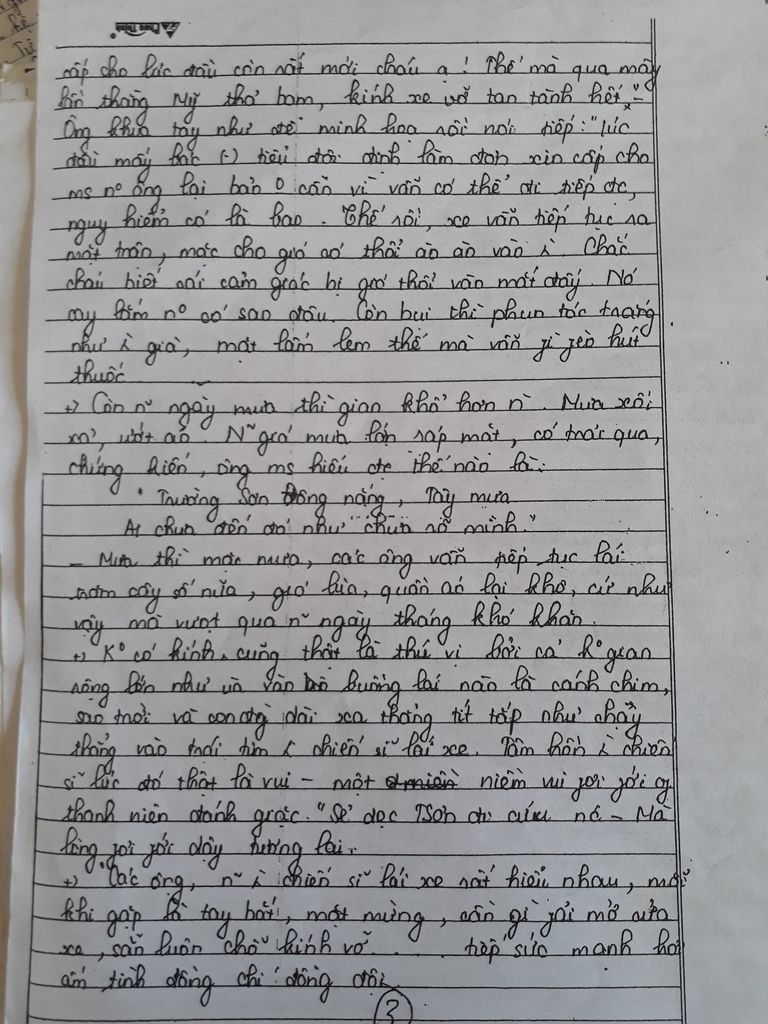 cấp cho lúc đầu còn rất mới cháu ạ! Thế mà qua mấy
lần thằng Mỹ thả bom, kính xe vỡ tan tành hết."
Ông khua tay như để minh hoạ rồi nói tiếp: "lúc
đầu mấy bác (-) tiểu đội định làm đơn xin cấp cho
ms nº ông lại bảo 0 cần vì vẫn có thể đi tiếp đc,
nguy hiểm có là bao. Thế rồi, xe vẫn tiếp tục ra
mặt trận, mặc cho gió cứ thổi ào ào vào Chắc
cháu biết cái cảm giác bị gió thổi vào mắt đấy. Nó
cay lắm nº có sao đâu. Còn bụi thì phun tóc trắng
như già, mặt lấm lem thế mà vẫn phì phèo hút
thuốc
+) Còn n~ ngày mưa thì gian khổ hơn n`. Mưa xối
xả, ướt áo. N~ gió mưa táp mặt, có trải qua,
chứng kiến, ông ms hiểu đc thế nào là:
" Trường Sơn Đông nắng, Tây mưa
Ai chưa đến đó như chưa rõ mình."
- Mưa thì mặc mưa, các ông vẫn tiếp tục lái
trăm cây số nữa, gió lùa, quần áo lại khô, cứ như
vậy mà vượt qua n~ ngày tháng khó khăn.
+) Kº có kính, cũng thật là thú vị bởi cả kº gian
rộng lớn như ùa vào buồng lái nào là cánh chim,
sao trời và con đg dài xa thẳng tít tắp như chạy
thẳng vào trái tim chiến sĩ lái xe. Tâm hồn chiến
sĩ lúc đó thật là vui - một niềm vui phơi phới of
thanh niên đánh giặc. "Sẻ dọc TSơn đi cứu nc - Mà
lòng phơi phới dậy tương lai.
+) Các ông, n~ chiến sĩ lái xe rất hiểu nhau, mỗi
khi gặp là tay bắt, mặt mừng, cần gì phải mở cửa
xe, sẵn luôn chỗ kính vỡ ..... tiếp sức mạnh hơi
ấm tình đồng chí đồng đội
3